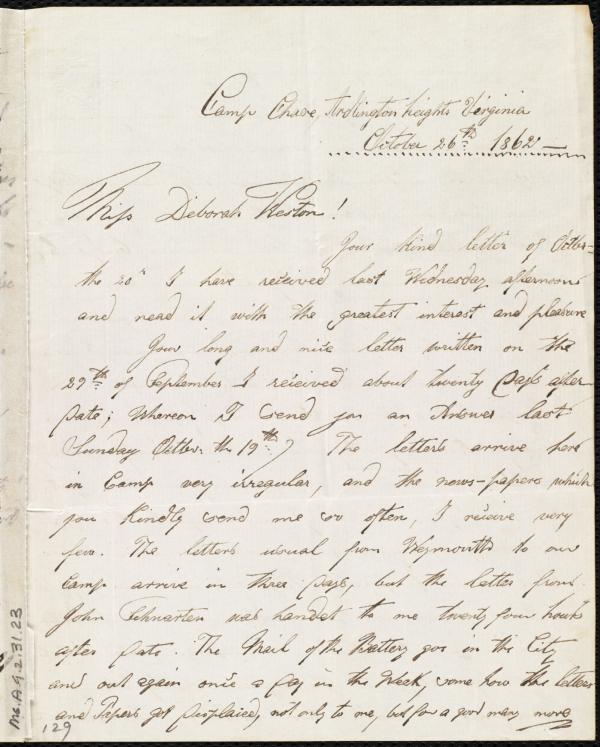 Camp Chase, Ardlington heights Virginia
October 26th 1862 —
Miss Deborah Weston!
Your kind letter of Octber
the 20th I have reiceived last Wednesday afternoon
and read it with the greatest interest and pleasure
Your long and nice letter written on the
29th of September I reiceived about twenty days after
date; Whereon I send you an Answer last
Sunday Octber. th 19th.) The letters arrive here
in Camp very irregular, and the news-papers which
you Kindly send me so often, I reiceive very
few. The letters usual from Weymouth to our
Camp arrive in three days, but the letter from
John Schnarten was handet to me twenty four hours
after date. The Mail of the Battery gos in the City
and out again once a day in the Week, some how the letters
and Papers get displaiced, not only to me, but for a good many more
Ms.A.9.2.31.23
129